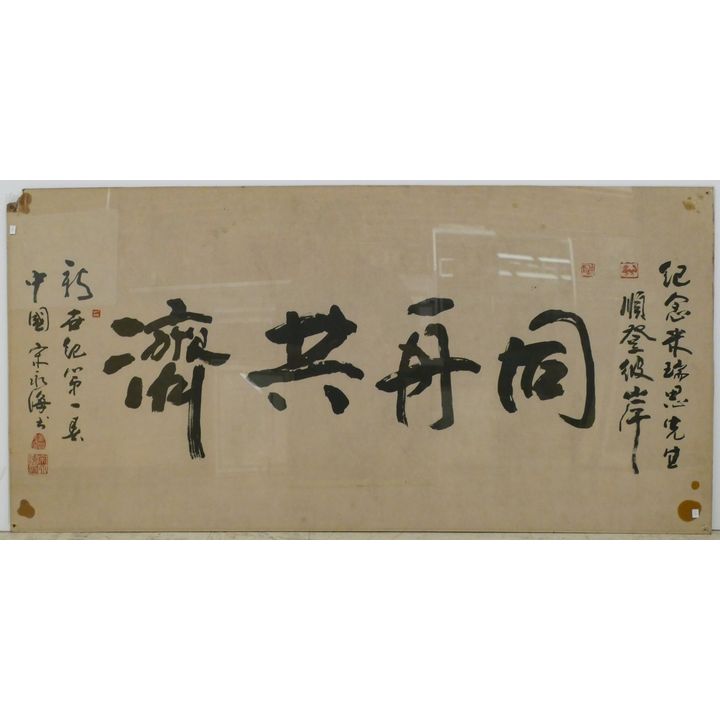 纪念米瑞思先生
順登彼岸
同舟共濟
新世纪第一春
中國宋永海书